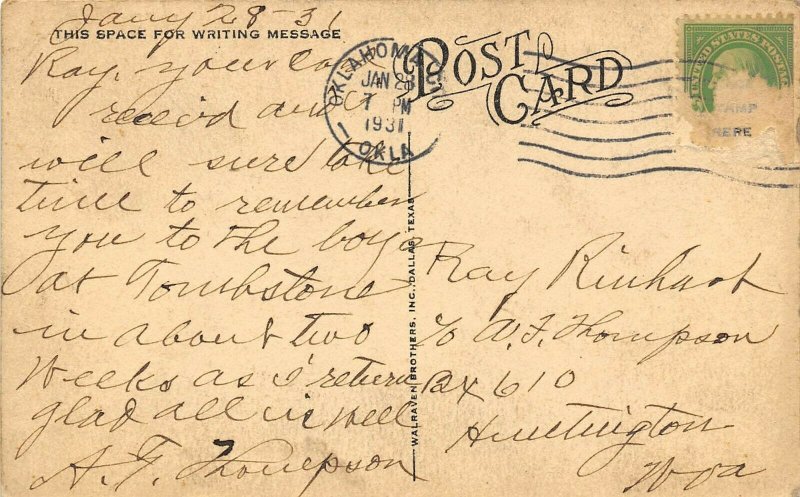 Jany 28-31
THIS SPACE FOR WRITING MESSAGE
Ray, your
received and
will sure take
time to remember
you to the boys
at Tombstone
in about two
weeks as I return
glad all is well
A. F. Thompson
WALRAVEN BROTHERS, INC., DALLAS, TEXAS
POST CARD
OKLAHOMA CITY
JAN 28
7 PM
1931
OKLA
UNITED STATES POSTAGE
STAMP
HERE
Ray Rinhart
c/o A. F. Thompson
Bx 610
Huntington
W va